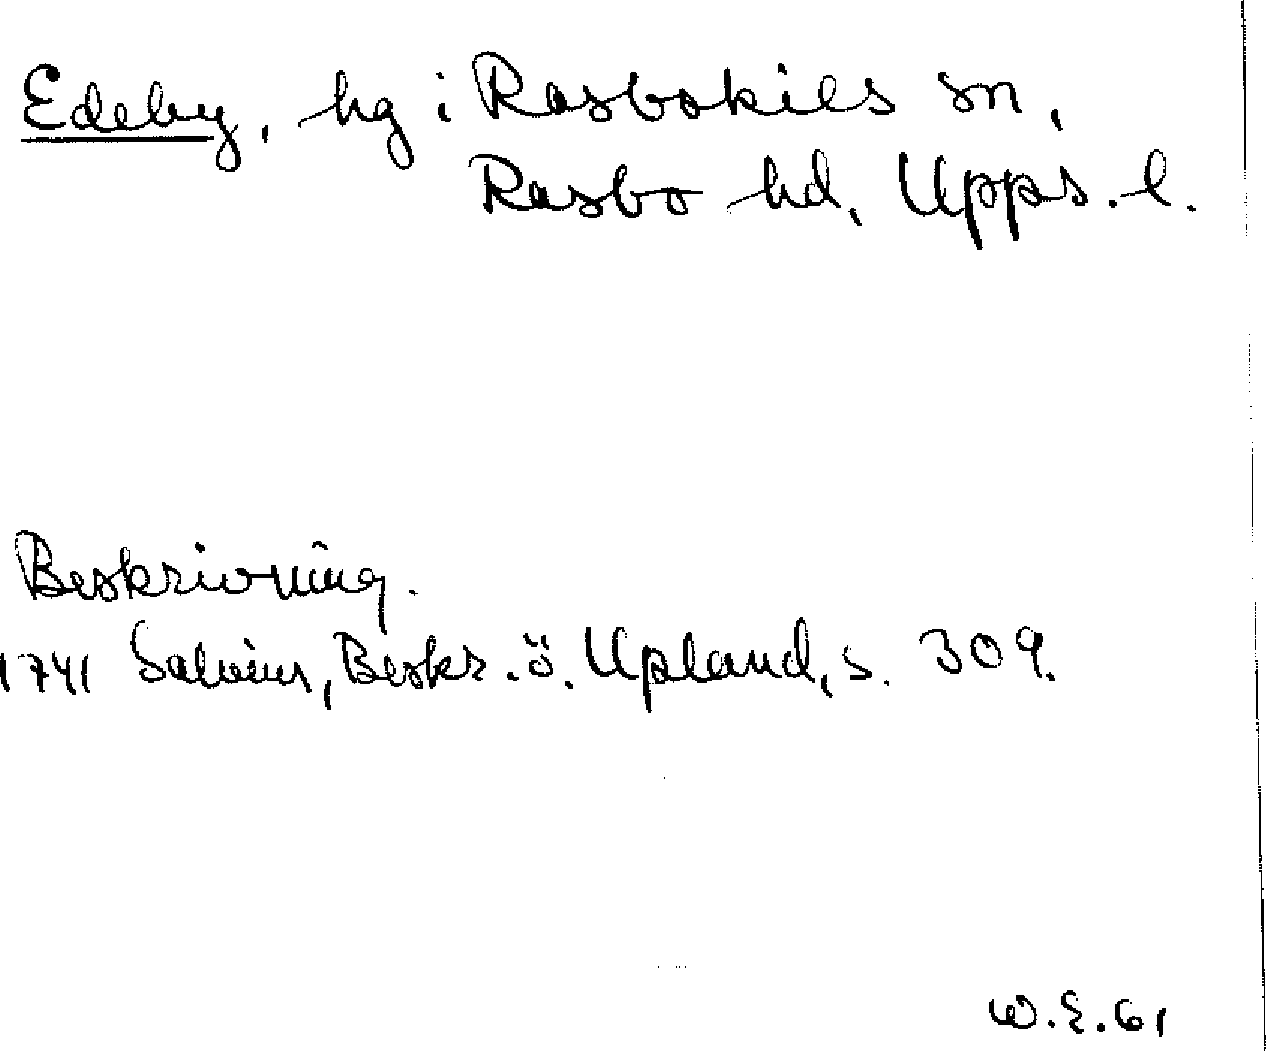 Edeby, hg i Rasbokils sn,
Rasbo hd, Upps. l.
Beskrivning.
1741 Salvius, Beskr. ö. Upland, s. 309.
W.E.61